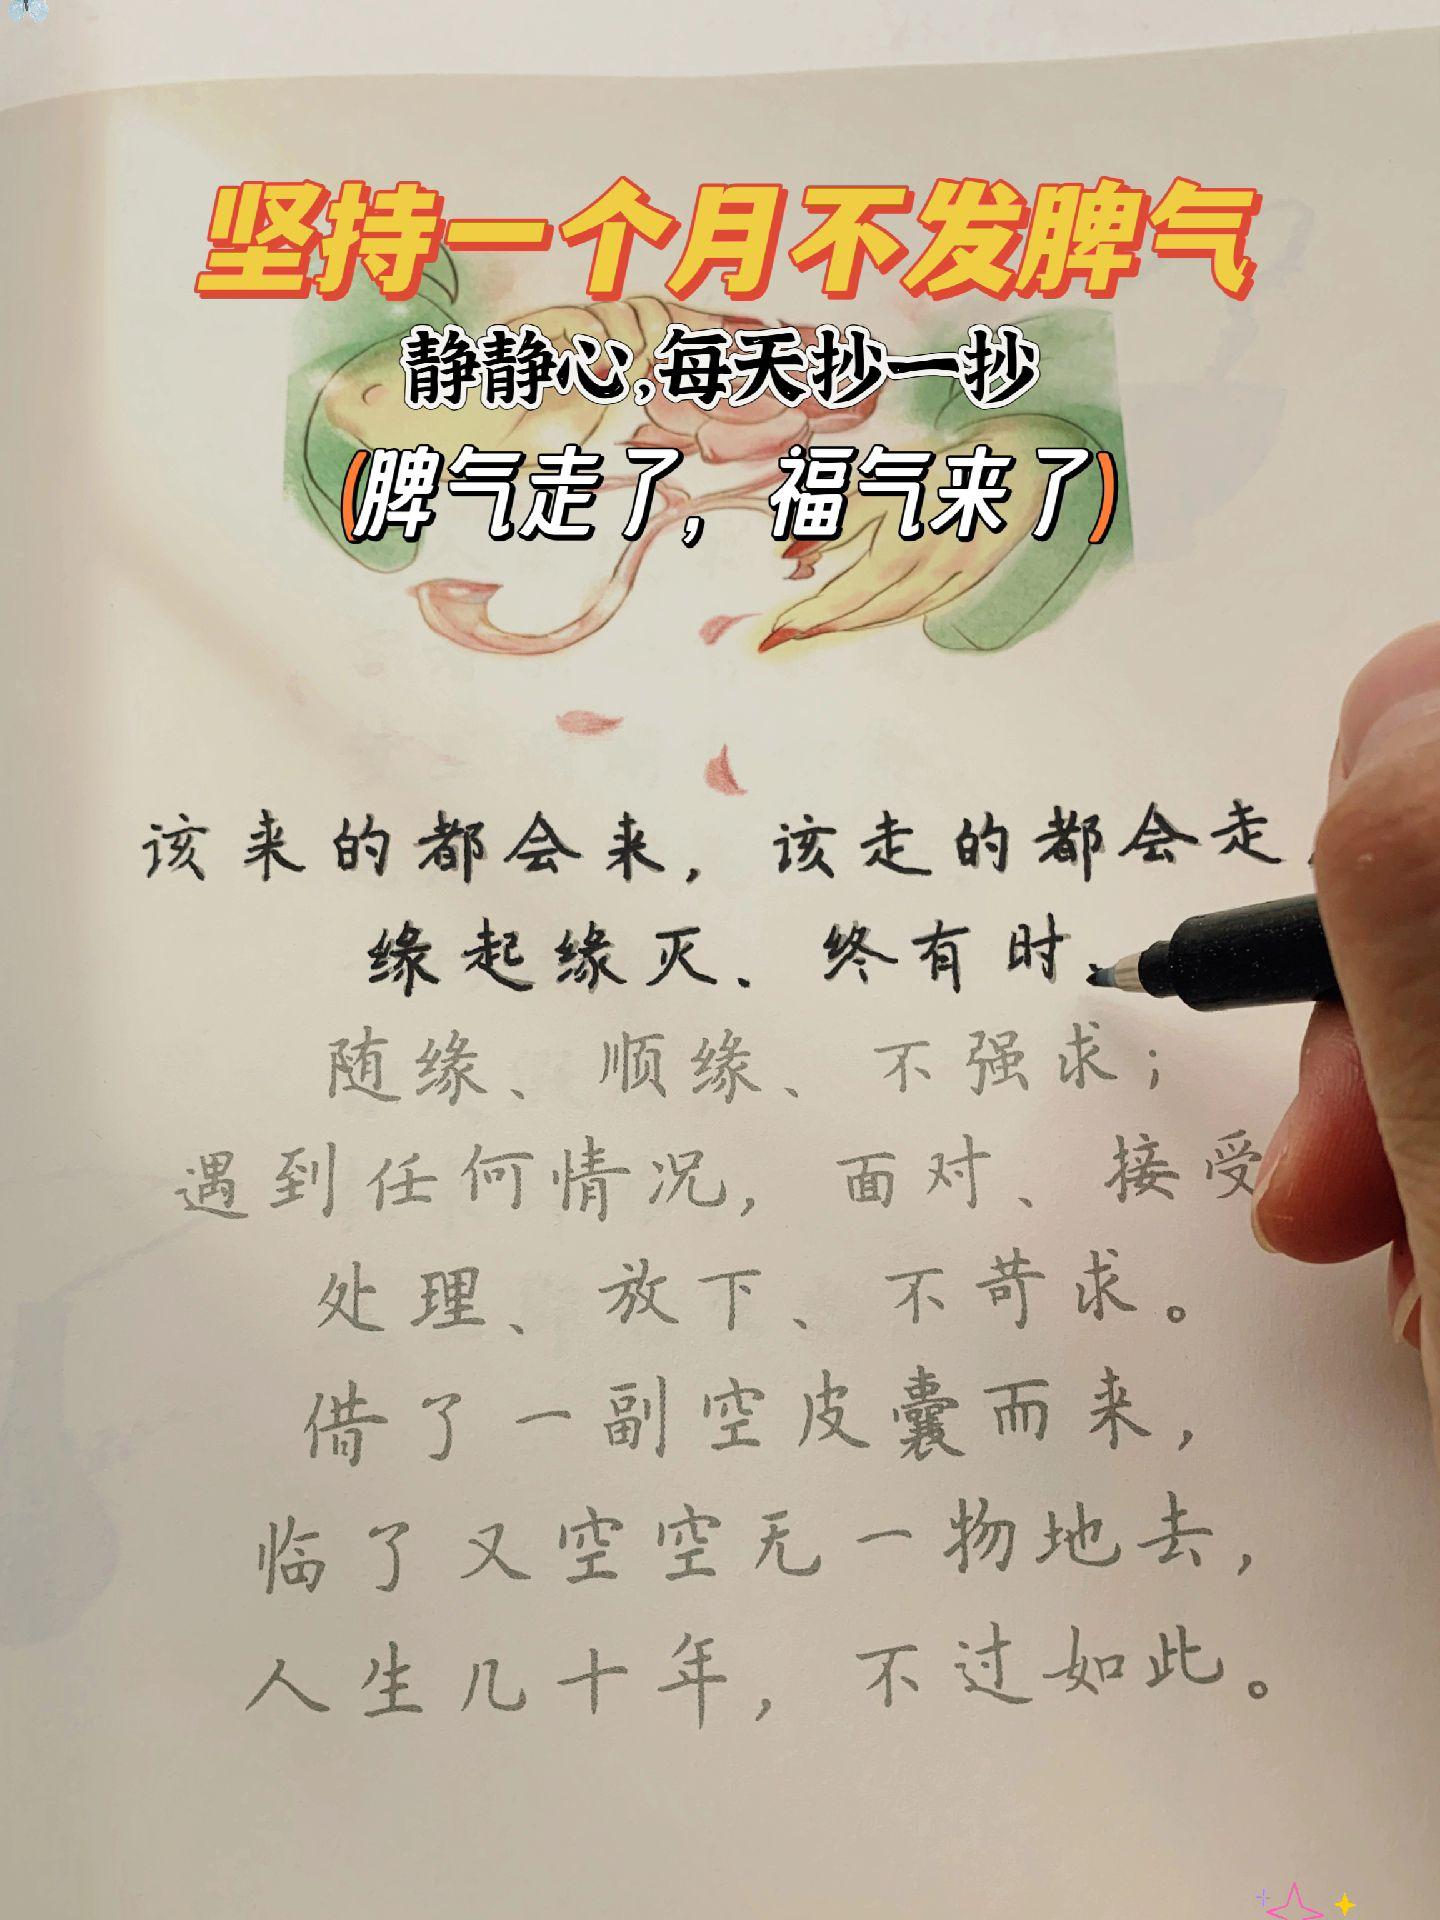 坚持一个月不发脾气
静静心,每天抄一抄
(脾气走了，福气来了)
该来的都会来，该走的都会走，
缘起缘灭、终有时、
随缘、顺缘、不强求；
遇到任何情况，面对、接受
处理、放下、不苛求。
借了一副空皮囊而来，
临了又空空无一物地去，
人生几十年，不过如此。